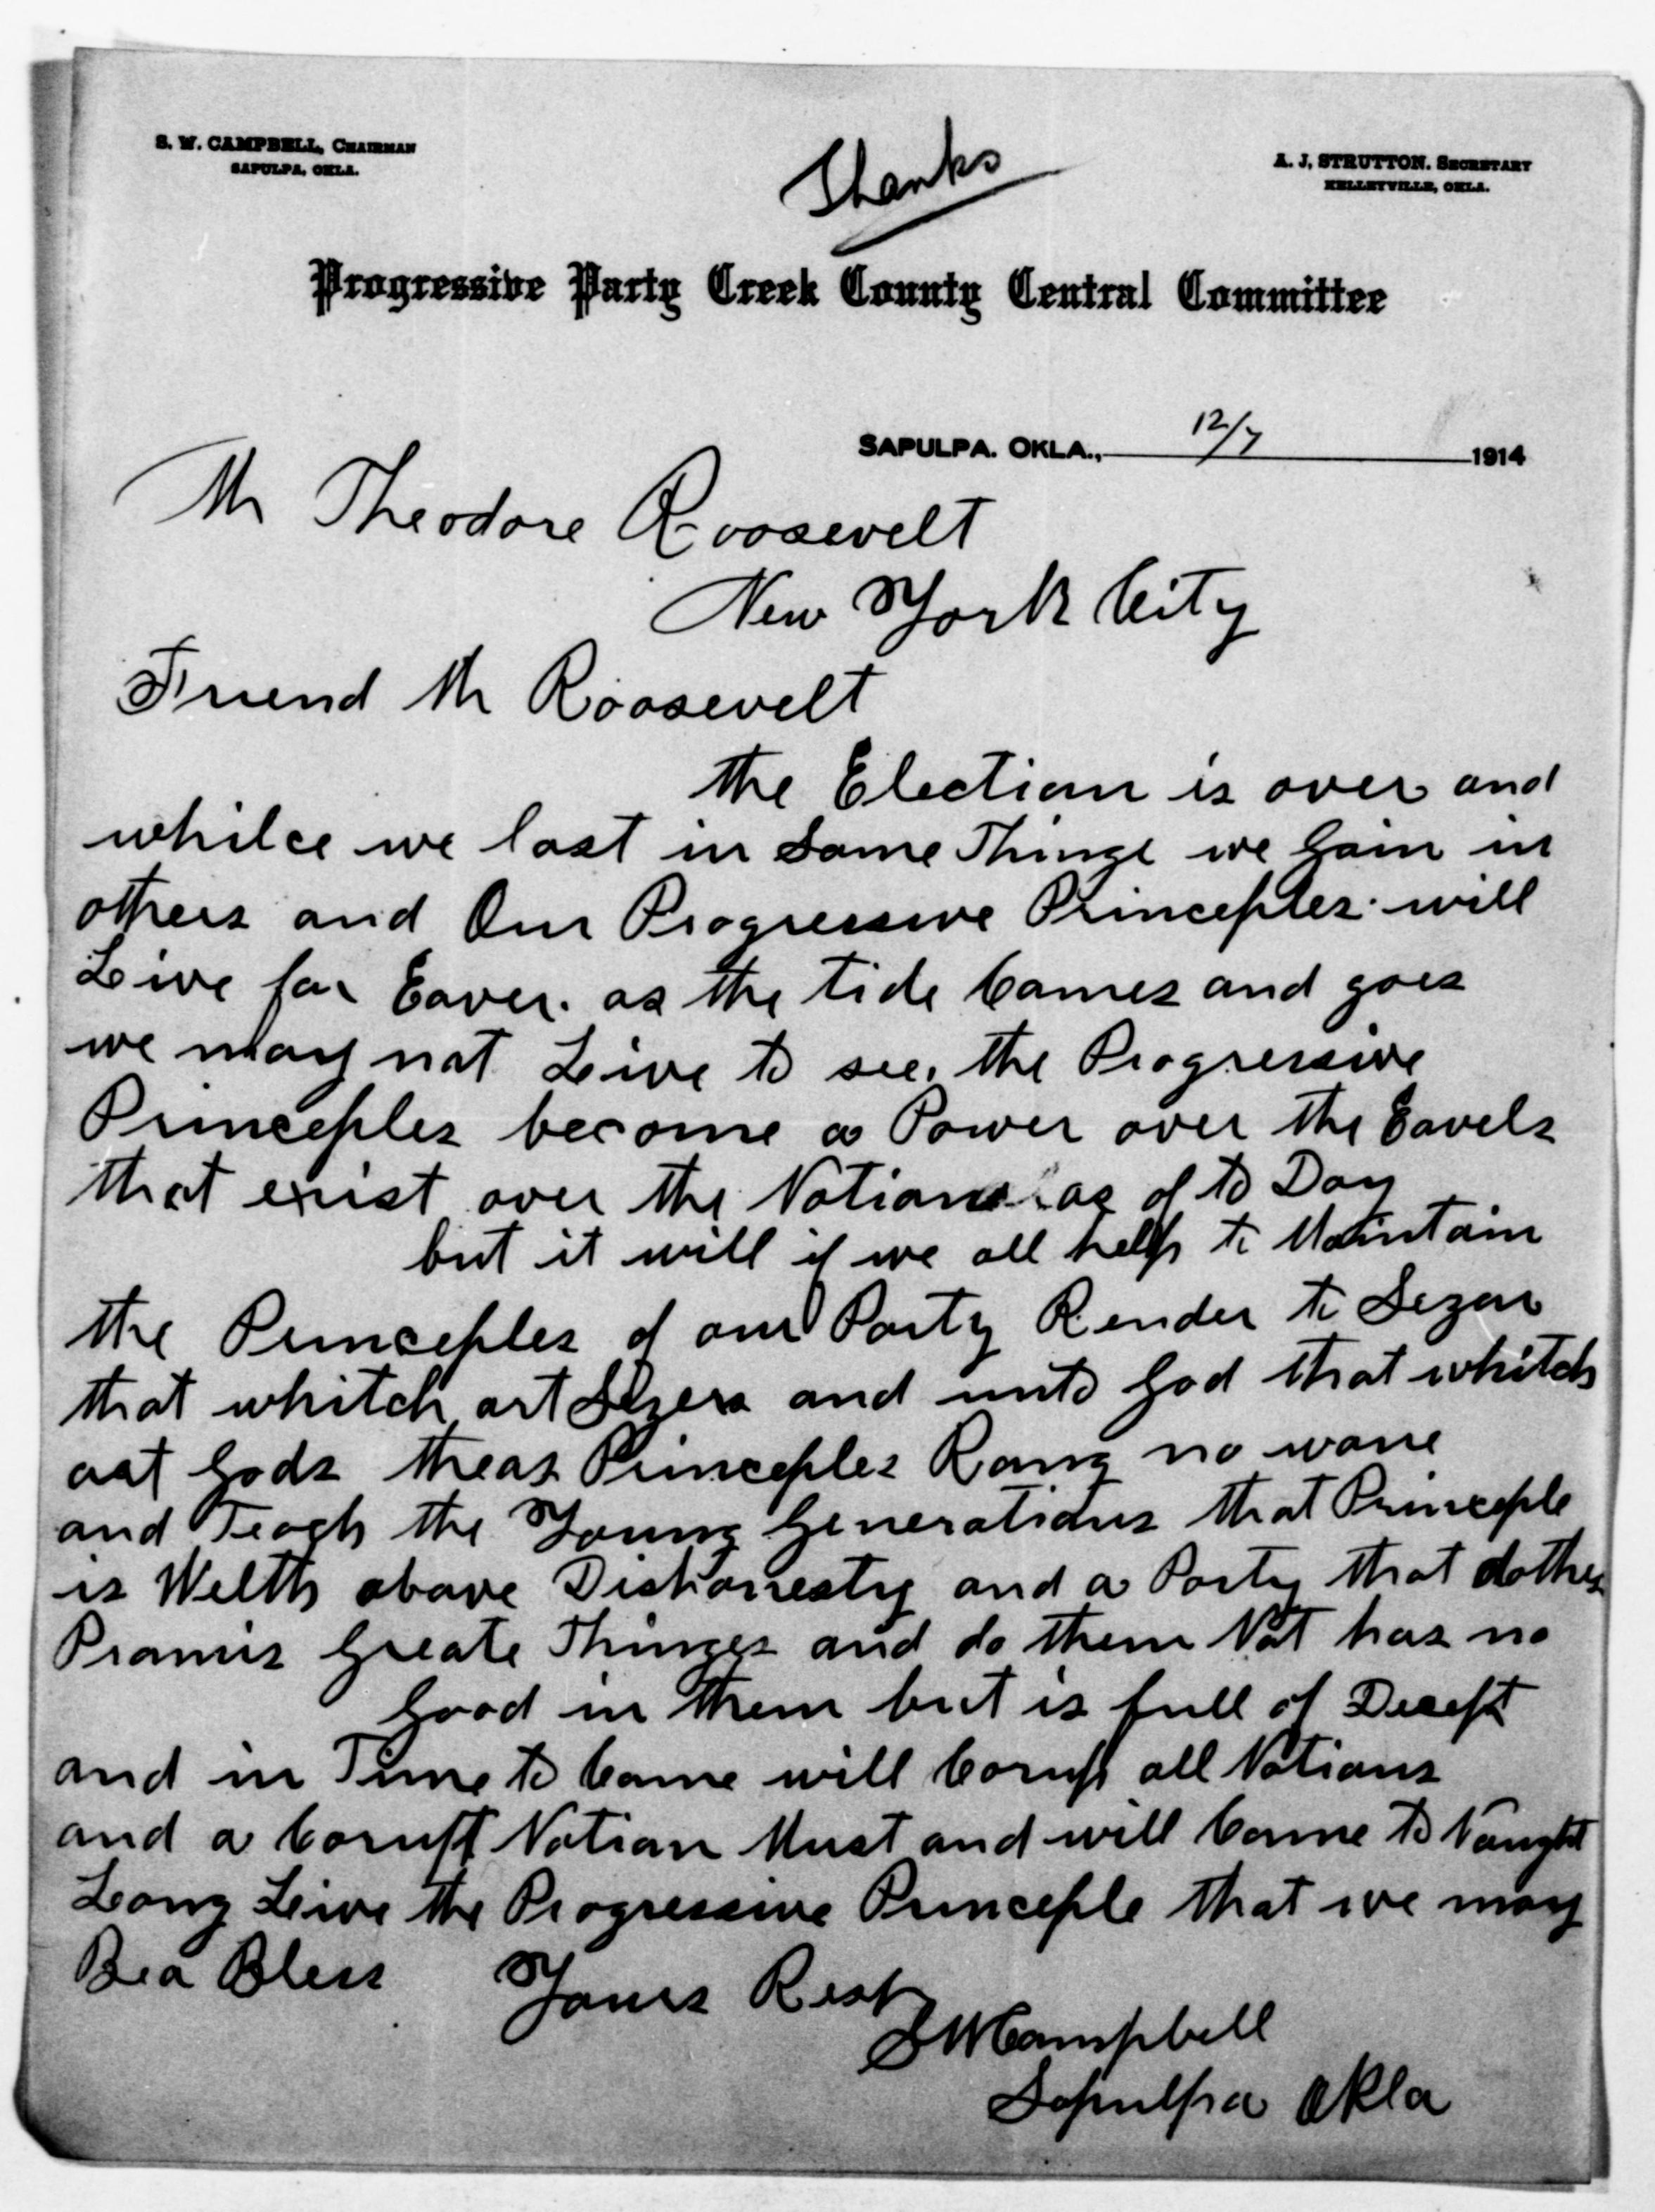 S. W. CAMPBELL, CHAIRMAN
SAPULPA, OKLA.
Thanks
A. J. STRUTTON. SECRETARY
KELLEYVILLE, OKLA.
Progressive Party Creek County Central Committee
SAPULPA. OKLA., 12/7 1914
Mr Theodore Roosevelt
New York City
Friend Mr Roosevelt
the Election is over and
whilce we lost in Some Things we Gain in
others and Our Progressive Princeples will
Leive for Eaver. as the tide Comes and goes
we may not Leive to see. the Progressive
Princeples become a Power over the Eavels
that exist over the Nation as of to Day
but it will if we all help to Maintain
the Princeples of our Party Render to Sezar
that whitch art Sezers and unto God that whitch
art Gods theas Princeples Rong no wone
and Teach the Young Generations that Princeple
is Welth above Dishonesty and a Party that dothe
Promis Greate Things and do them Not has no
Good in them but is full of Decept
and in Time to Come will Corrup all Nations
and a Corrupt Nation Must and will Come to Nought
Long Leive the Progressive Princeple that we may
Bea Bless Yours Resp
S W Campbell
Sapulpa Okla